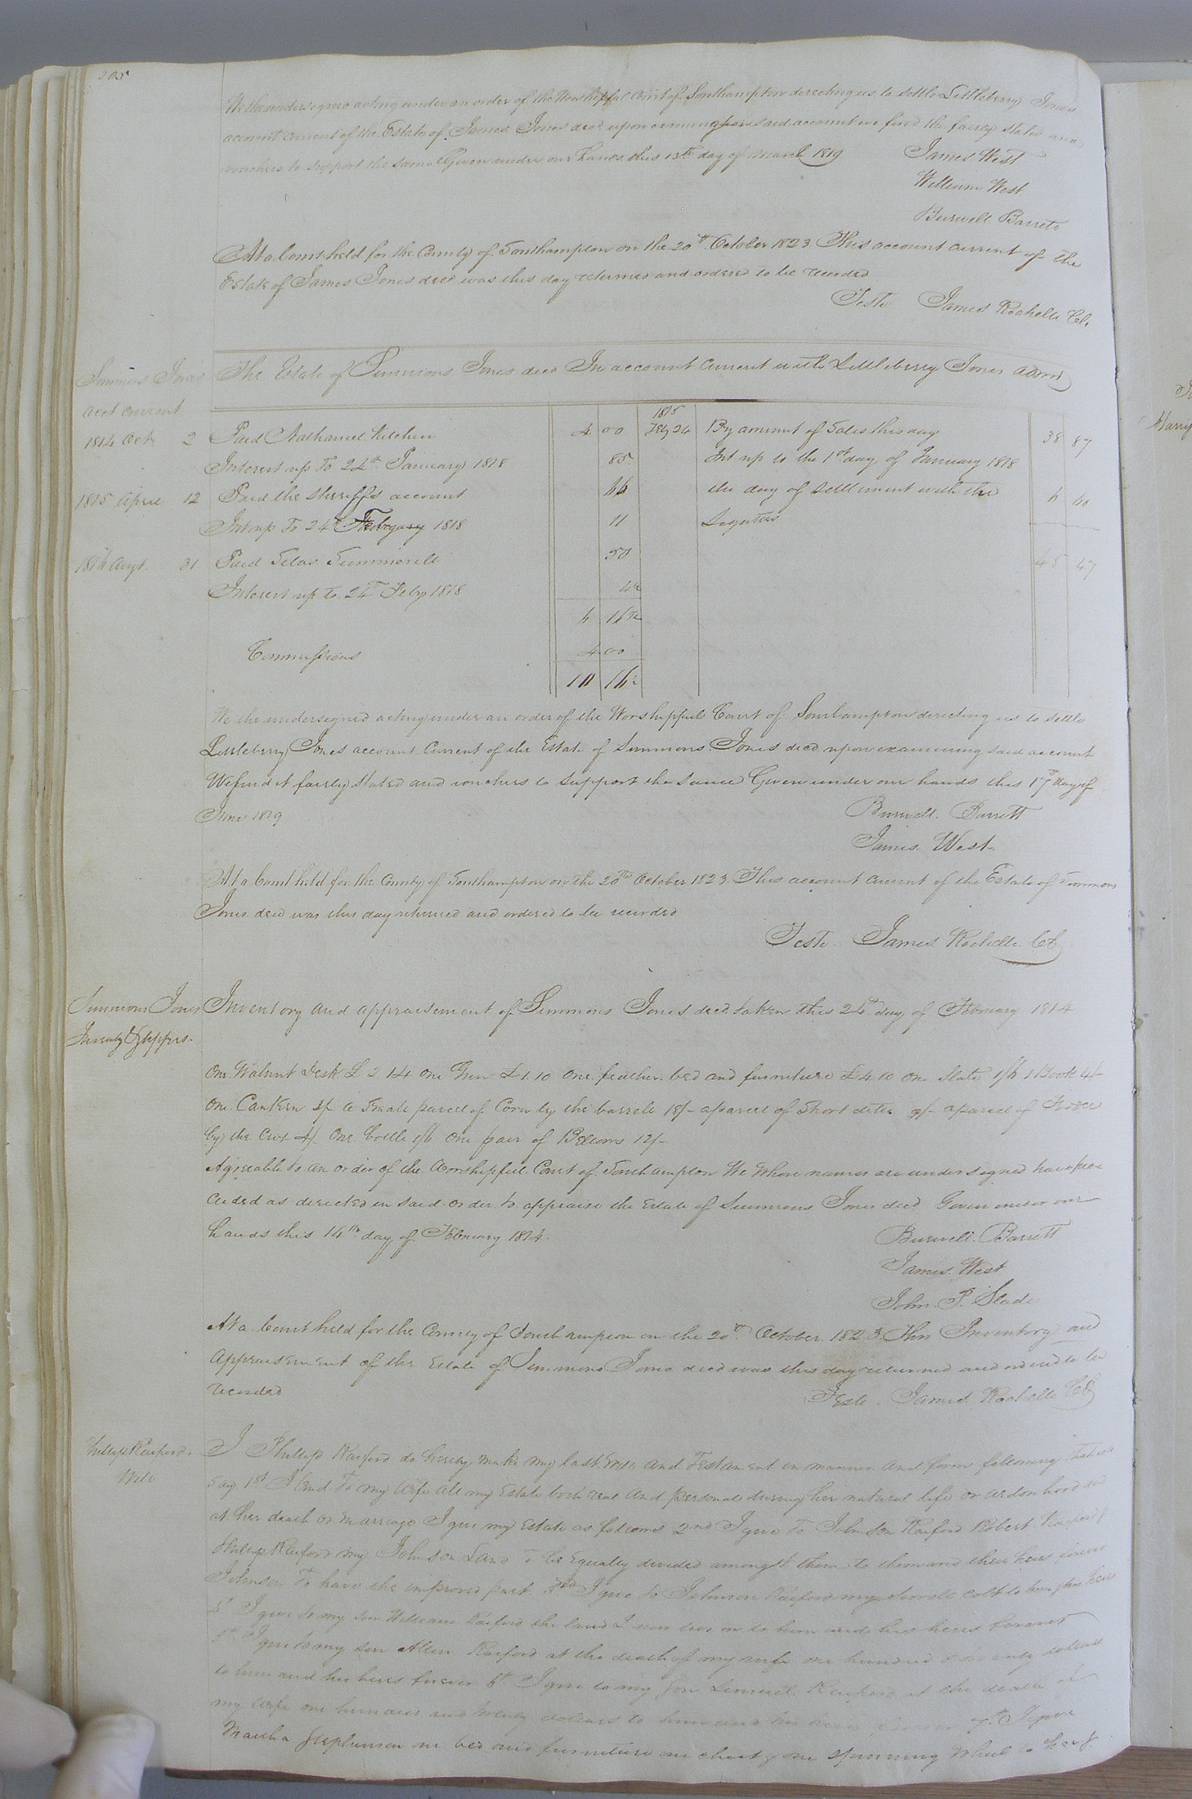 205
We the undersigned acting under an order of the Worshipful Court of Southampton directing us to settle Littleberry Jones
account current of the Estate of James Jones decd upon examining said account we find the fairly stated and
vouchers to support the same Given under our hands this 13th day of March 1819
James West
William West
Burwell Barrett
At a Court held for the County of Southampton on the 20th October 1823 This account current of the
Estate of James Jones decd was this day returned and ordered to be recorded
Teste James Rochelle Clk
Simmons Jones
acct current
The Estate of Simmons Jones decd In account current with Littleberry Jones admr
1814 Oct 2 Paid Nathaniel Kitchen 4 00
1815 Feby 24 By amount of Sales this day 38 87
Interest up to 24th January 1818 85
Int up to the 1st day of January 1818
1815 April 12 Paid the Sheriffs account
the day of Settlement with the 6 60
Int up to 24th February 1818 11
Legatees
Augt 31 Paid Silas Summerell 50
45 47
Interest up to 24th Feby 1818
Commissions 4 00
We the undersigned acting under an order of the Worshipful Court of Southampton directing us to settle
Littleberry Jones account Current of the Estate of Simmons Jones decd upon examining said account
We find it fairly stated and vouchers to support the same Given under our hands this 17th day of
June 1819
Burwell Barrett
James West
At a Court held for the County of Southampton on the 20th October 1823 This account current of the Estate of Simmons
Jones decd was this day returned and ordered to be recorded
Teste James Rochelle Clk
Simmons Jones
Inventy & Appprs.
Inventory and appraisement of Simmons Jones decd taken this 24th day of February 1814
One Walnut Desk £2 14 One Gun £1.10 One feather bed and furniture £4.10 One Slate 1/6 1 Book 4/
One Canteen 3/ a Small parcel of Corn by the barrele 15/ a parcel of Short ditto a parcel of
by the One Bottle 1/6 One pair of Bellows 12/
Agreeable to an order of the Worshipfull Court of Southampton We Whose names are under signed have proc
ceeded as directed in said order to appraise the Estate of Simmons Jones decd Given under our
hands this 14th day of February 1814
Burwell Barrett
James West
John P. Slade
At a Court held for the County of Southampton on the 20th October 1823 This Inventory and
Appraisement of the Estate of Simmons Jones decd was this day returned and ordered to be
recorded
Teste James Rochelle Clk
Phillip Raiford
Will
I Phillip Raiford do hereby make my last Will and Testament in manner and form following that is
Say 1st I lend to my Wife all my Estate both real and personal during her natural life or widowhood
at her death or marriage I give my Estate as follows 2nd I give to Johnson Raiford Robert Raiford &
Phillip Raiford my Johnson Land to be Equally divided amongst them to them and their heirs forever
Johnson to have the improved part 3rd I give to Johnson Raiford my Sorrele colt to him & his heirs
I give to my Son William Raiford the land I now live on to him and his heirs forever
5th I give to my son Allen Raiford at the death of my wife one hundred & twenty dollars
to him and his heirs forever 6th I give to my Son Lemuel Raiford at the death of
my wife one hundred and twenty dollars to him and his heirs forever 7th I give
Martha Stephenson one bed and furniture one chest & one Spinning Wheel to her &